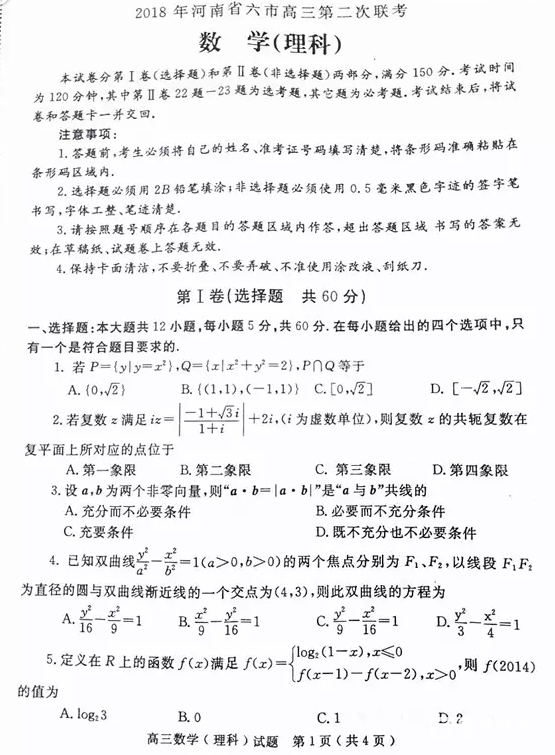 2018年河南省六市高三第二次联考
数 学(理科)
本试卷分第Ⅰ卷(选择题)和第Ⅱ卷(非选择题)两部分,满分150分.考试时间
为120分钟,其中第Ⅱ卷22题—23题为选考题,其它题为必考题.考试结束后,将试
卷和答题卡一并交回.
注意事项:
1.答题前,考生必须将自己的姓名、准考证号码填写清楚,将条形码准确粘贴在
条形码区域内.
2.选择题必须用2B铅笔填涂;非选择题必须使用0.5毫米黑色字迹的签字笔
书写,字体工整、笔迹清楚.
3.请按照题号顺序在各题目的答题区域内作答,超出答题区域 书写的答案无
效;在草稿纸、试题卷上答题无效.
4.保持卡面清洁,不要折叠、不要弄破、不准使用涂改液、刮纸刀.
第Ⅰ卷(选择题 共60分)
一、选择题:本大题共12小题,每小题5分,共60分.在每小题给出的四个选项中,只
有一个是符合题目要求的.
1. 若P={y|y=x²},Q={x|x²+y²=2},P∩Q等于
A.{0,√2} B.{(1,1),(-1,1)} C.[0,√2] D.[-√2,√2]
2.若复数z满足iz=|(-1+√3i)/(1+i)|+2i,(i为虚数单位),则复数z的共轭复数在
复平面上所对应的点位于
A.第一象限 B.第二象限 C.第三象限 D.第四象限
3.设a,b为两个非零向量,则“a·b=|a·b|”是“a与b”共线的
A.充分而不必要条件 B.必要而不充分条件
C.充要条件 D.既不充分也不必要条件
4. 已知双曲线y²/a²-x²/b²=1(a>0,b>0)的两个焦点分别为F₁、F₂,以线段F₁F₂
为直径的圆与双曲线渐近线的一个交点为(4,3),则此双曲线的方程为
A.y²/16-x²/9=1 B.x²/9-y²/16=1 C.y²/9-x²/16=1 D.y²/3-x²/4=1
5.定义在R上的函数f(x)满足f(x)={log₂(1-x),x≤0
f(x-1)-f(x-2),x>0,则f(2014)
的值为
A.log₂3 B.0 C.1 D.2
高三数学(理科)试题 第1页(共4页)